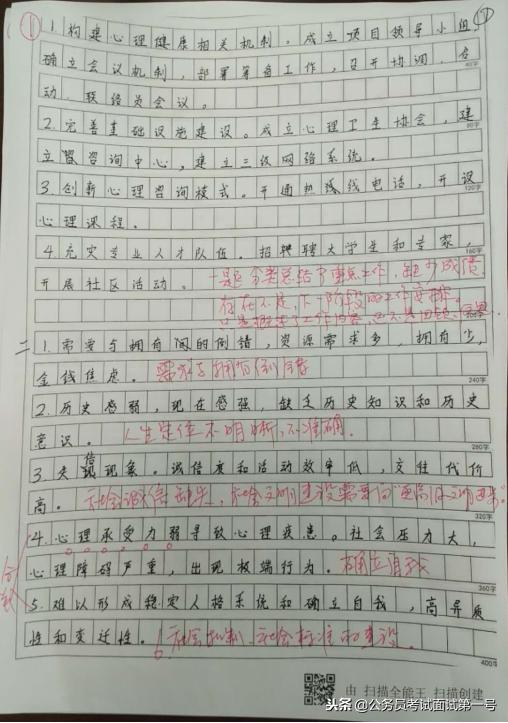 ① 1.构建心理健康相关机制。成立项目领导小组,
确立会议机制,部署筹备工作,召开协调、启
动、联络员会议。
2.完善基础设施建设。成立心理卫生协会,建
立咨询中心,建立三级网络系统。
3.创新心理咨询模式。开通热线电话,开设
心理课程。
4.充实专业人才队伍。招聘大学生和专家,
开展社区活动。
二 1.需要与拥有间的倒错,资源需求多,拥有少,
金钱焦虑。 需求与拥有倒错
2.历史感弱,现在感强,缺乏历史知识和历史
意识。 人生定位不明晰,不准确。
3.失信现象。诚信度和活动效率低,交往代价
高。 社会诚信缺失,社会文明建设需要
4.心理承受力弱导致心理疾患。社会压力大,
心理障碍严重,出现极端行为。 确立自我
5.难以形成稳定人格系统和确立自我,高异质
性和变迁性。
40字
80字
120字
160字
240字
280字
320字
360字
400字
由 扫描全能王 扫描创建
头条 @公务员考试面试第一号